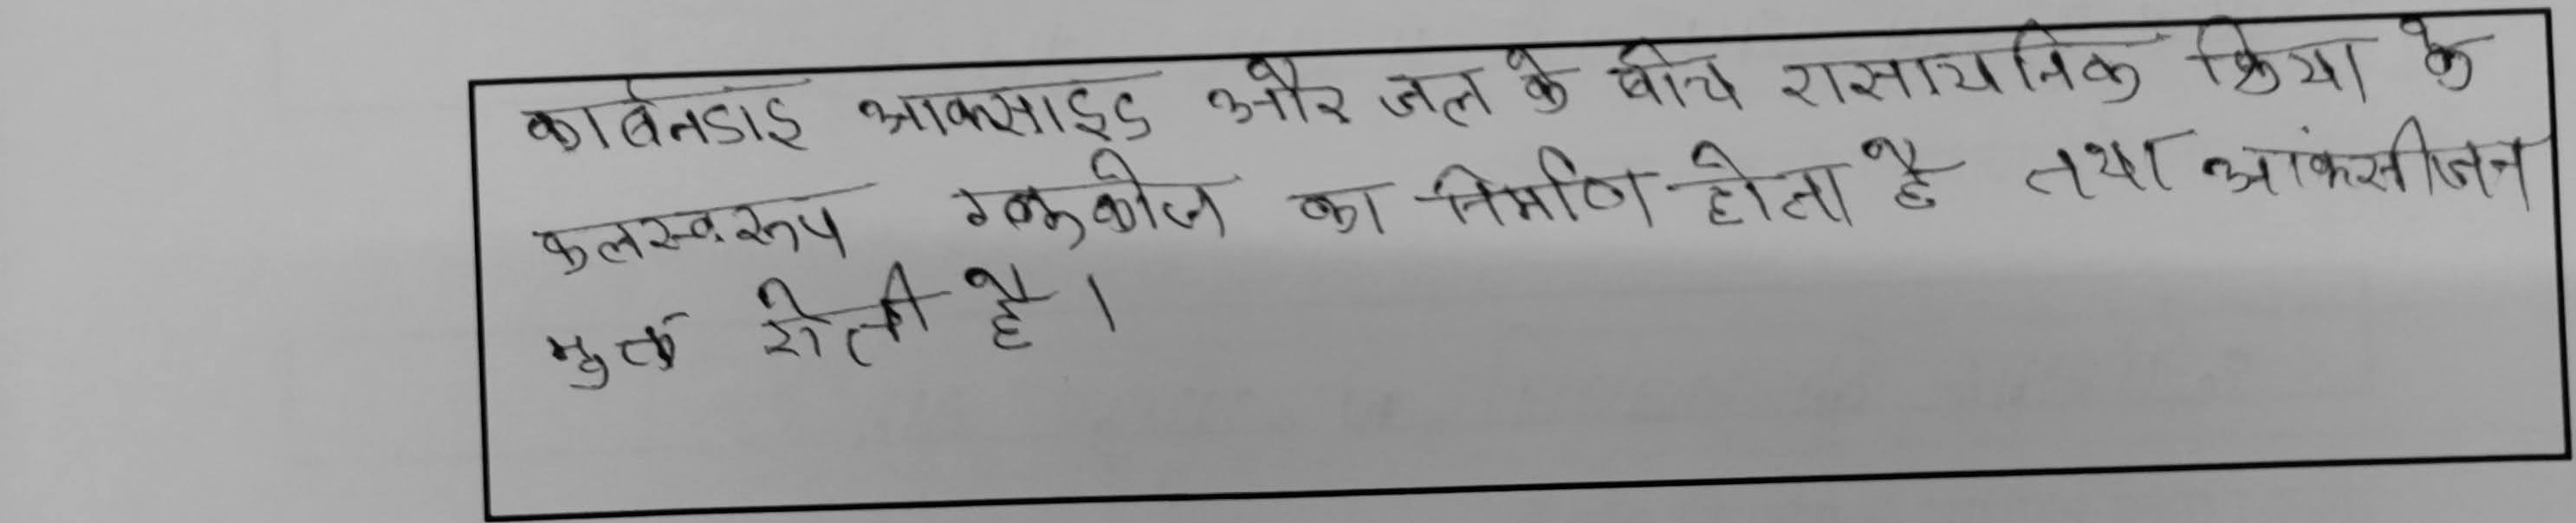 कार्बनडाइ आक्साइड और जल के बीच रासायनिक क्रिया के
फलस्वरूप ग्लूकोज का निर्माण होता है तथा आंक्सीजन
मुक्त होती है।